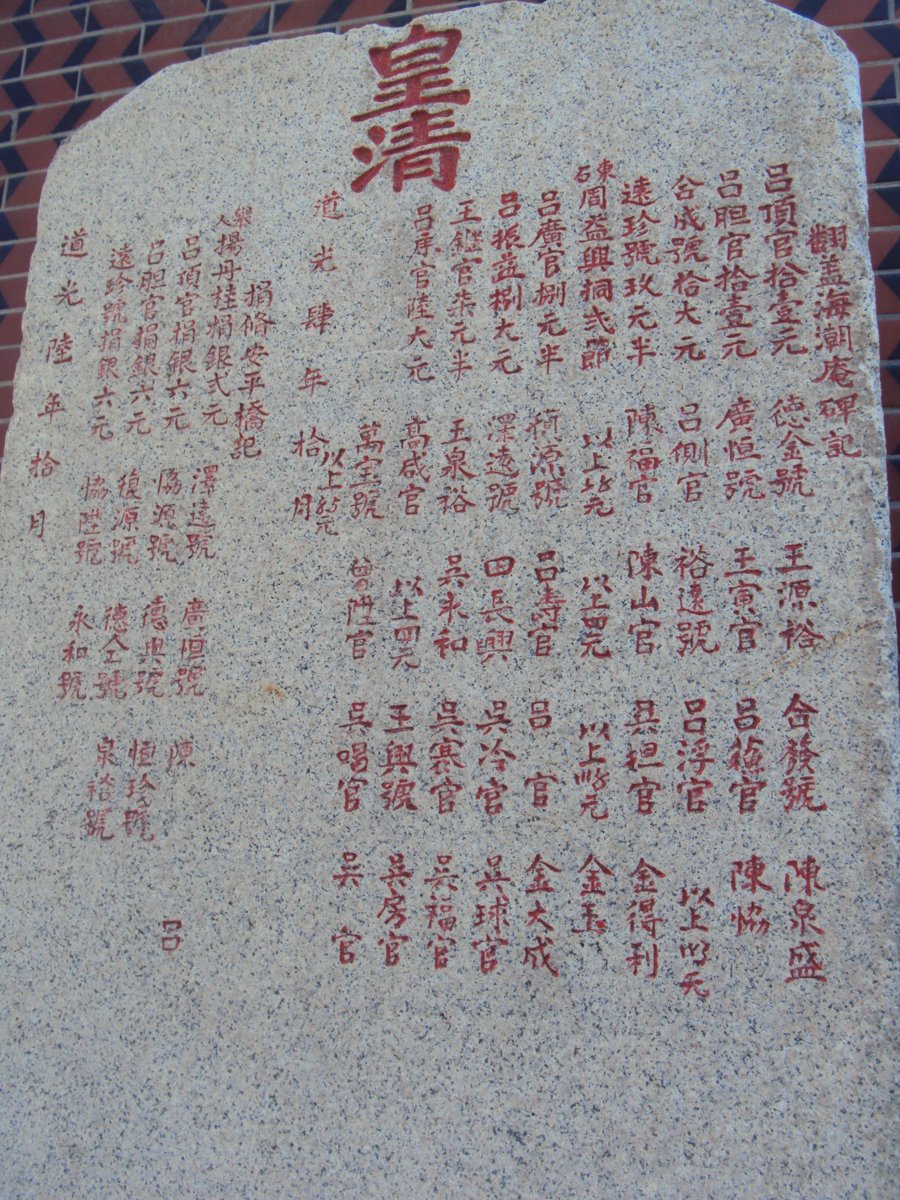 皇清
翻蓋海潮庵碑記
呂頂官拾壹元 德金號 王源裕 合發號 陳泉盛
呂胆官拾壹元 廣恒號 王寅官 呂 官 陳協
合成號拾大元 呂側官 裕遠號 呂浮官 以上 元
遠珍號玖元半 陳福官 陳山官 吳担官 金得利
東石周益興捐弍節 以上 元 以上四元 以上 元 金玉
呂廣官捌元半 源號 呂壽官 呂 官 金大成
呂振益捌大元 澤遠號 田長興 吳冷官 吳球官
王 官柒元半 王泉裕 吳永和 吳寒官 吳福官
呂 官陸大元 高咸官 以上四元 王興號 吳房官
萬宝號 曾 官 吳唱官 吳 官
以上 元
道光肆年拾月
捐脩安平橋記
舉人楊丹桂捐銀弍元 澤遠號 廣恒號 陳 呂
呂頂官捐銀六元 協源號 德興號 恒珍號
呂胆官捐銀六元 復源號 德金號 泉裕號
遠珍號捐銀六元 協陞號 永和號
道光陸年拾月